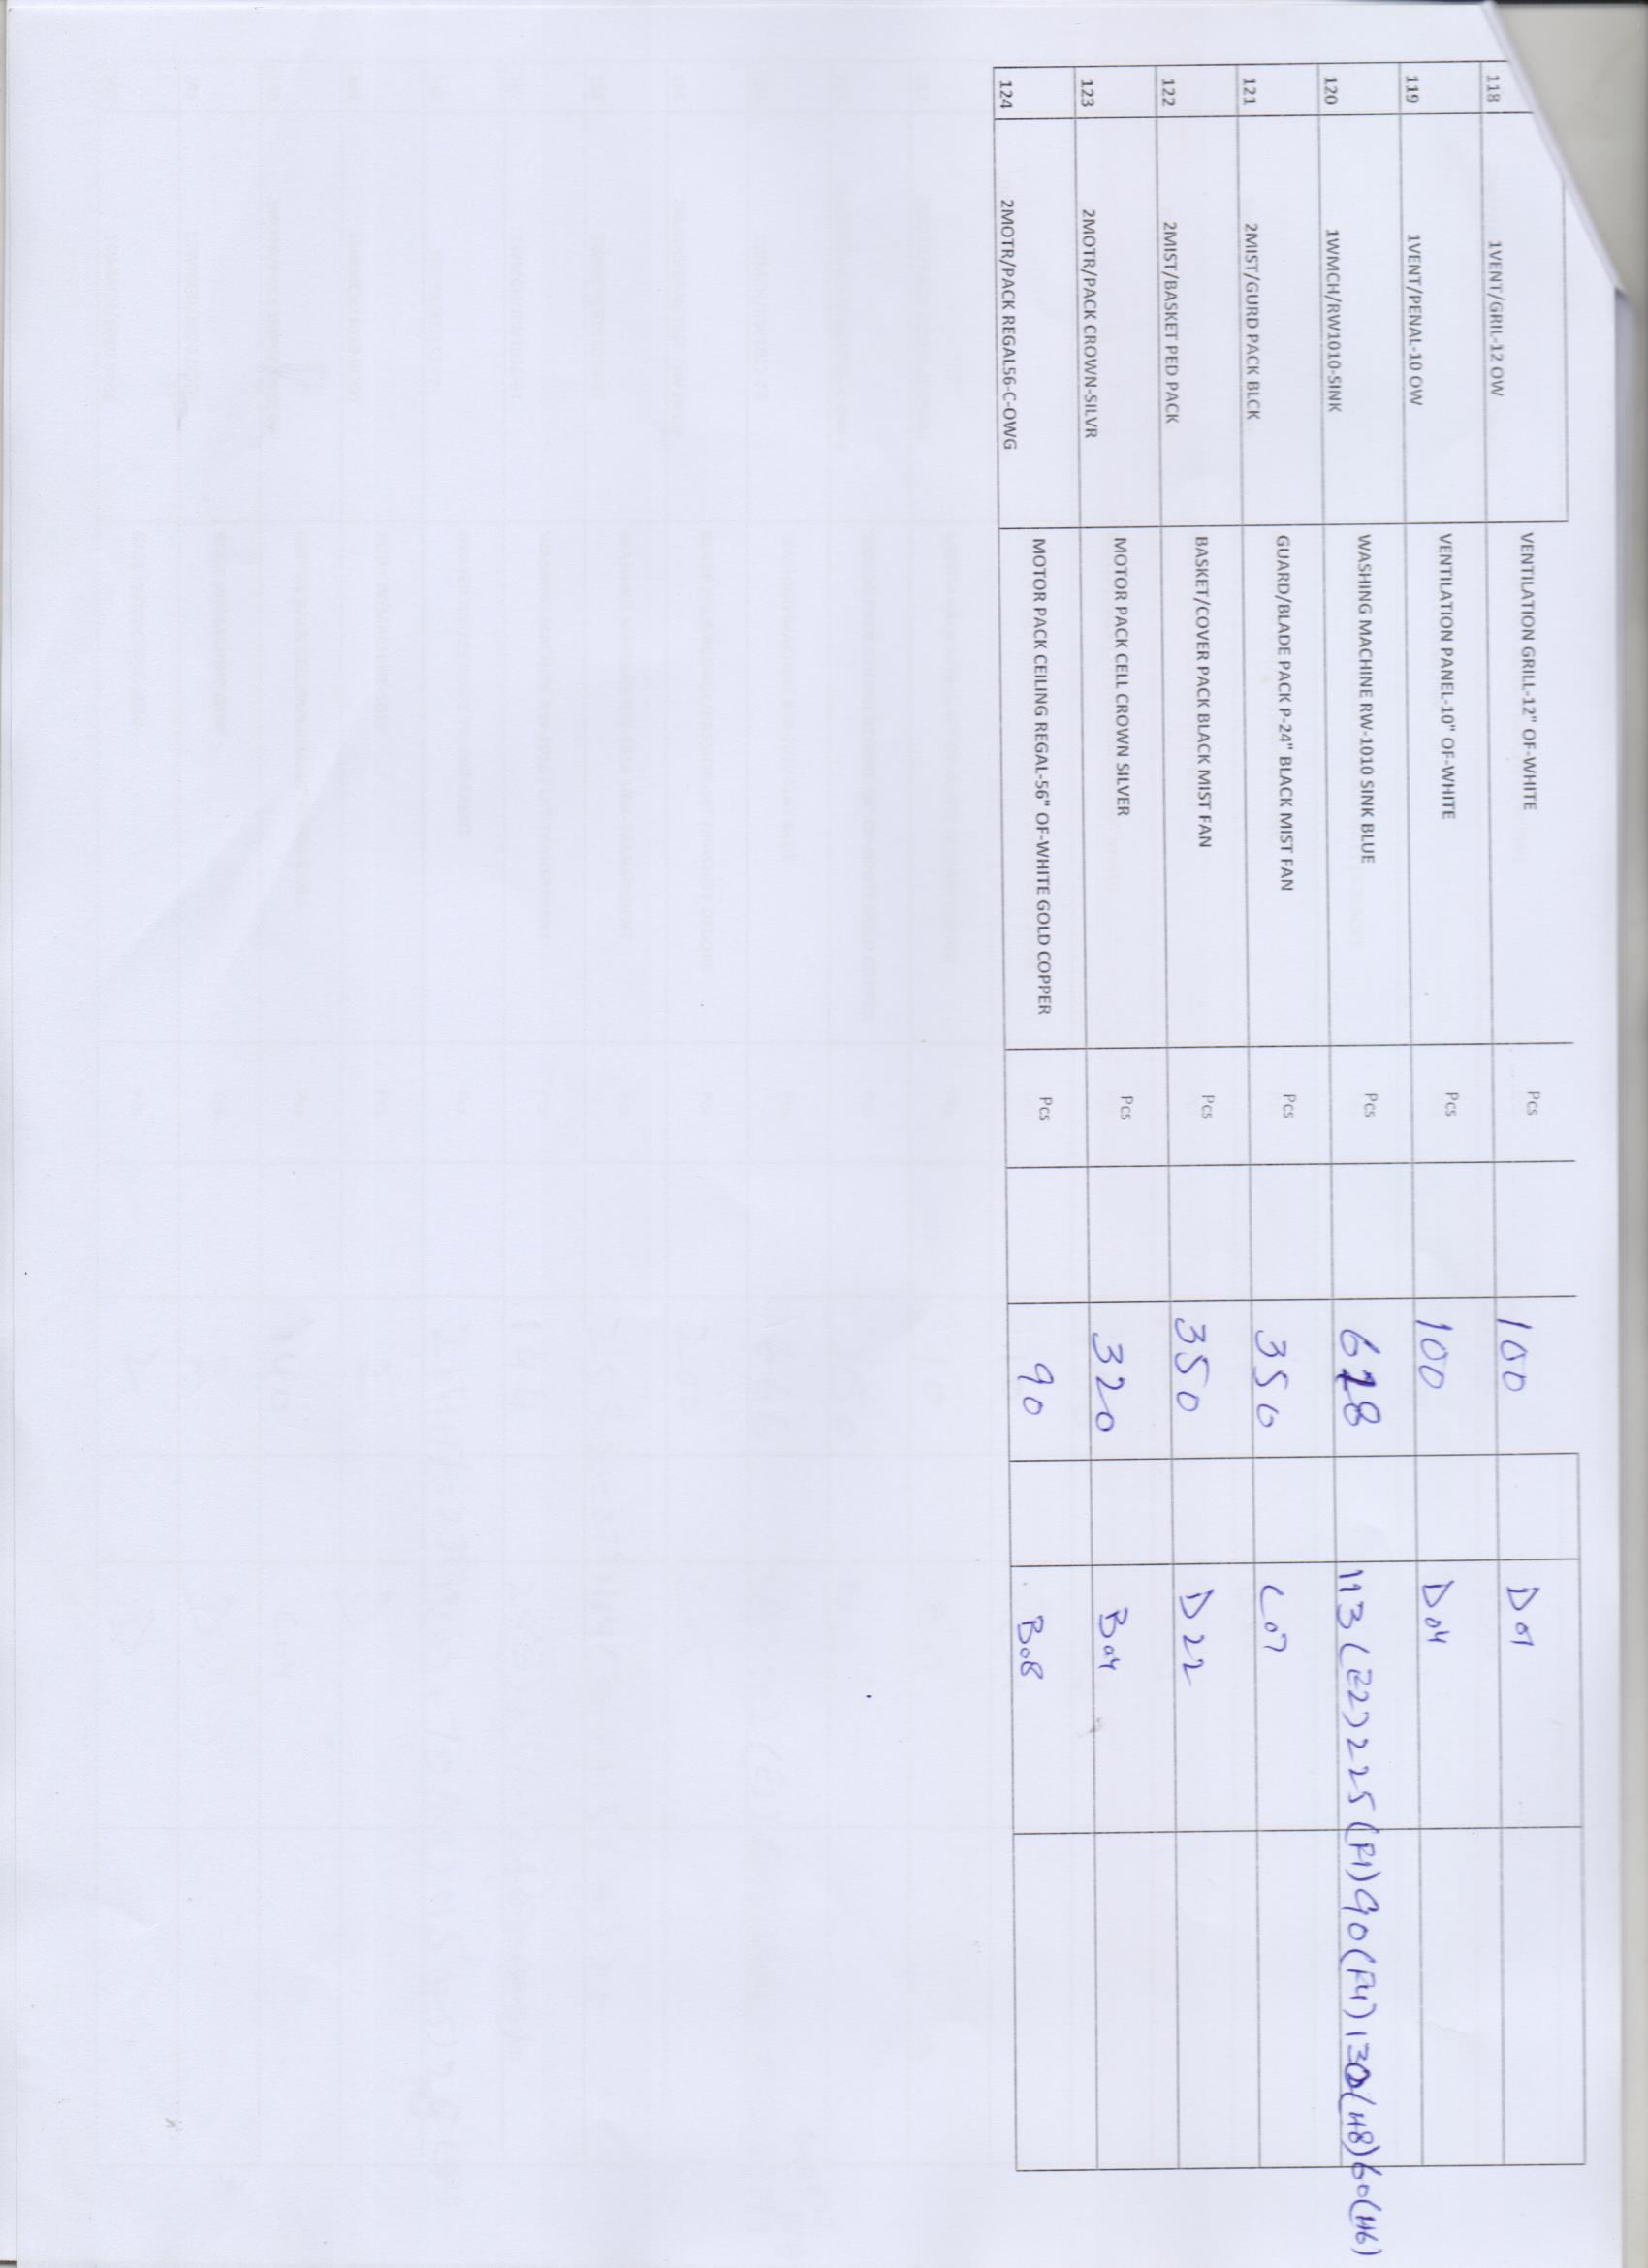 118 1VENT/GRIL-12 OW VENTILATION GRILL-12" OF-WHITE Pcs 100 D01
119 1VENT/PENAL-10 OW VENTILATION PANEL-10" OF-WHITE Pcs 100 D04
120 1WMCH/RW1010-SINK WASHING MACHINE RW-1010 SINK BLUE Pcs 618 113 (E2) 225 (F1) 90 (F4) 130 (H8) 60 (H6)
121 2MIST/GURD PACK BLCK GUARD/BLADE PACK P-24" BLACK MIST FAN Pcs 350 C07
122 2MIST/BASKET PED PACK BASKET/COVER PACK BLACK MIST FAN Pcs 350 D22
123 2MOTR/PACK CROWN-SILVR MOTOR PACK CELL CROWN SILVER Pcs 320 B04
124 2MOTR/PACK REGAL56-C-OWG MOTOR PACK CEILING REGAL-56" OF-WHITE GOLD COPPER Pcs 90 B08